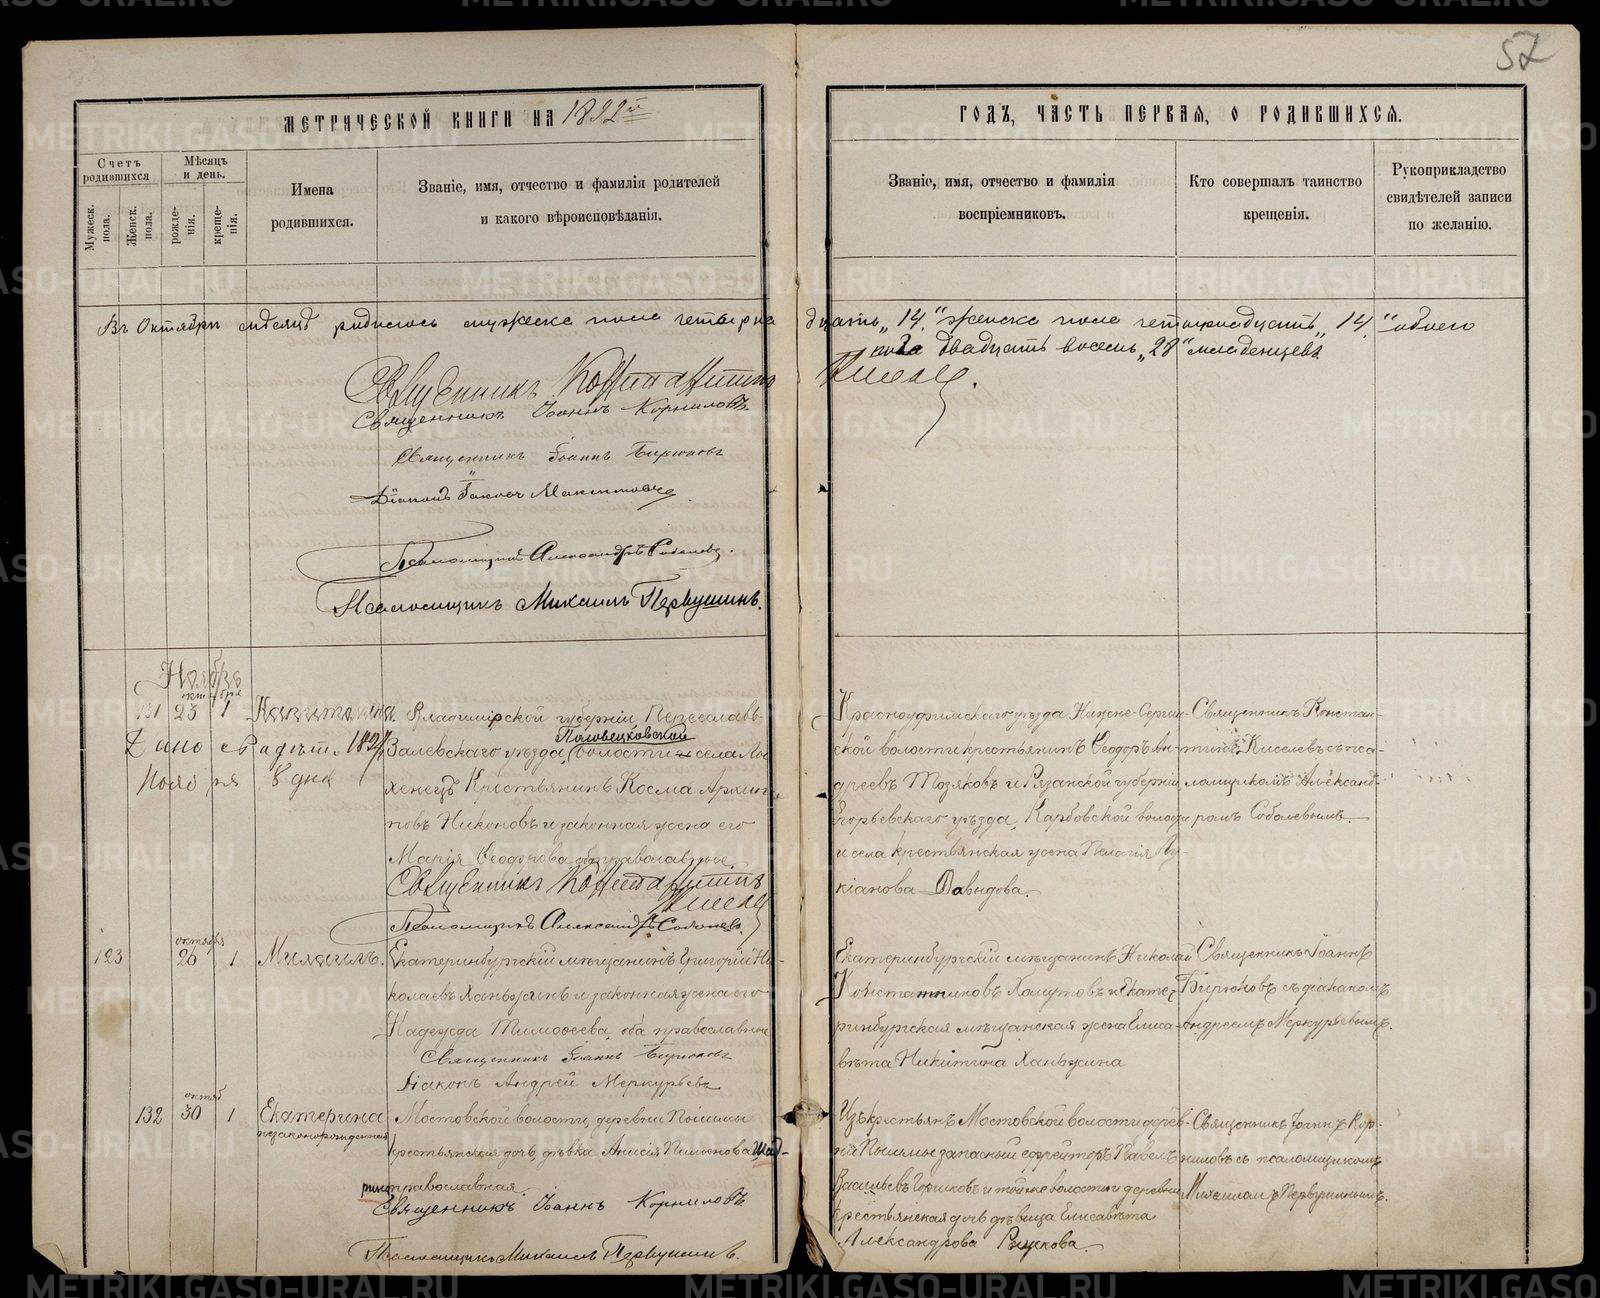 57
МЕТРИЧЕСКОЙ КНИГИ НА 1892й
ГОДЪ, ЧАСТЬ ПЕРВАЯ, О РОДИВШИХСЯ.
Счетъ родившихся
Мѣсяцъ и день.
Мужеск. пола.
Женск. пола.
рожде-нія.
креще-нія.
Имена родившихся.
Званіе, имя, отчество и фамилія родителей
и какого вѣроисповѣданія.
Званіе, имя, отчество и фамилія
воспріемниковъ.
Кто совершалъ таинство
крещенія.
Рукоприкладство
свидѣтелей записи
по желанію.
Въ Октябрѣ мѣсяцѣ родилось мужеска пола четырна
дцать „14.“ женска пола четырнадцать „14“ обоего
пола двадцать восемь „28“ младенцевъ
Священникъ Константинъ
Киселевъ.
Священникъ Іоаннъ Корниловъ.
Священникъ Іоаннъ Бирюковъ
Діаконъ Іаковъ
Псаломщикъ Александръ Соболевъ.
Псаломщикъ Михаилъ Первушинъ.
Ноябрь
октября
131 23 1 Капитолина.
Дано свидѣт. 1897
Ноября 8 дня
Владимірской губерніи, Переславь-
Залевскаго уѣзда, Половецковской
волости села
Крестьянинъ Косма Архип-
повъ Никоновъ и законная жена его
Марія Ѳеодорова, оба православные.
Священникъ Константинъ
Киселевъ
Псаломщикъ Александръ Соболевъ.
Красноуфимскаго уѣзда Нижне-Сергин-
ской волости крестьянинъ Ѳеодоръ Ан-
дреевъ Тозяковъ и Рязанской губерніи
Егорьевскаго уѣзда, Карбовской волости
и села крестьянская жена Пелагія Лу-
кіанова Давыдова.
Священникъ Констан-
тинъ Киселевъ съ пса-
ломщикомъ Александ-
ромъ Соболевымъ.
октября
123 26 1 Михаилъ.
Екатеринбургскій мѣщанинъ Григорій Ни-
колаевъ Ханьжинъ и законная жена его
Надежда Тимоѳеева, оба православные
Священникъ Іоаннъ Бирюковъ
Діаконъ Андрей Меркурьевъ
Екатеринбургскій мѣщанинъ Николай
Константиновъ Хомутовъ и Екате-
ринбургская мѣщанская жена Елиса-
вѣта Никитина Ханьжина
Священникъ Іоаннъ
Бирюковъ съ діакономъ
Андреемъ Меркурьевымъ.
октяб
132 30 1 Екатерина
незаконорожденная
Мостовской волости, деревни Пышмы
крестьянская дочь, дѣвка Анисія Пимонова Шад-
рина православная.
Священникъ Іоаннъ Корниловъ
Псаломщикъ Михаилъ Первушинъ.
Изъ крестьянъ Мостовской волости дерев-
ни Пышмы запасный ефрейторъ Павелъ
Васильевъ Горшковъ и той же волости и деревни
крестьянская дочь дѣвица Елисавѣта
Александрова
Священникъ Іоаннъ Кор-
ниловъ съ псаломщикомъ
Михаиломъ Первушинымъ.
METRIKI.GASO-URAL.RU